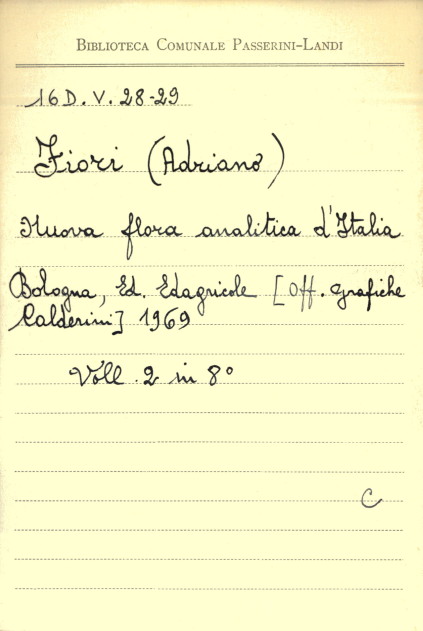 BIBLIOTECA COMUNALE PASSERINI-LANDI
16 D. V. 28-29
Fiori (Adriano)
Nuova flora analitica d'Italia
Bologna, Ed. Edagricole [Off. Grafiche
Calderini] 1969
Voll. 2 in 8°
C